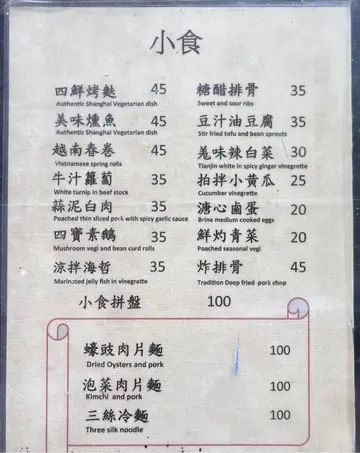 小食
四鮮烤麩 45
Authentic Shanghai Vegetarian dish
美味燻魚 45
Authentic Shanghai Vegetarian dish
越南春卷 45
Vietnamese spring rolls
牛汁蘿蔔 35
White turnip in beef stock
蒜泥白肉 35
Poached thin sliced pork with spicy garlic sauce
四寶素鵝 35
Mushroom vegi and bean curd rolls
涼拌海哲 35
Marinated jelly fish in vinegratte
糖醋排骨 35
Sweet and sour ribs
豆汁油豆腐 35
Stir fried tofu and bean sprouts
羗味辣白菜 30
Tianjin white in spicy ginger vinegrette
拍拌小黃瓜 25
Cucumber vinegrette
溏心鹵蛋 20
Brine medium cooked eggs
鮮灼青菜 20
Poached seasonal vegi
炸排骨 45
Tradition Deep fried pork chop
小食拼盤 100
蠔豉肉片麵 100
Dried Oysters and pork
泡菜肉片麵 100
Kimchi and pork
三絲冷麵 100
Three silk noodle